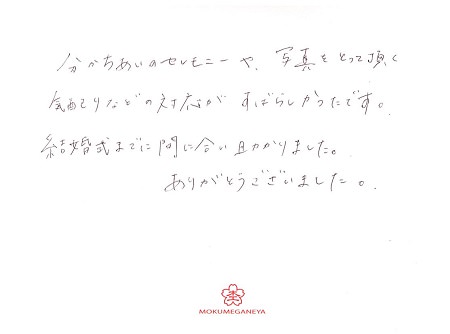 分かちあいのセレモニーや、写真をとって頂く
気配りなどの対応がすばらしかったです。
結婚式までに間に合い助かりました。
ありがとうございました。
MOKUMEGANEYA